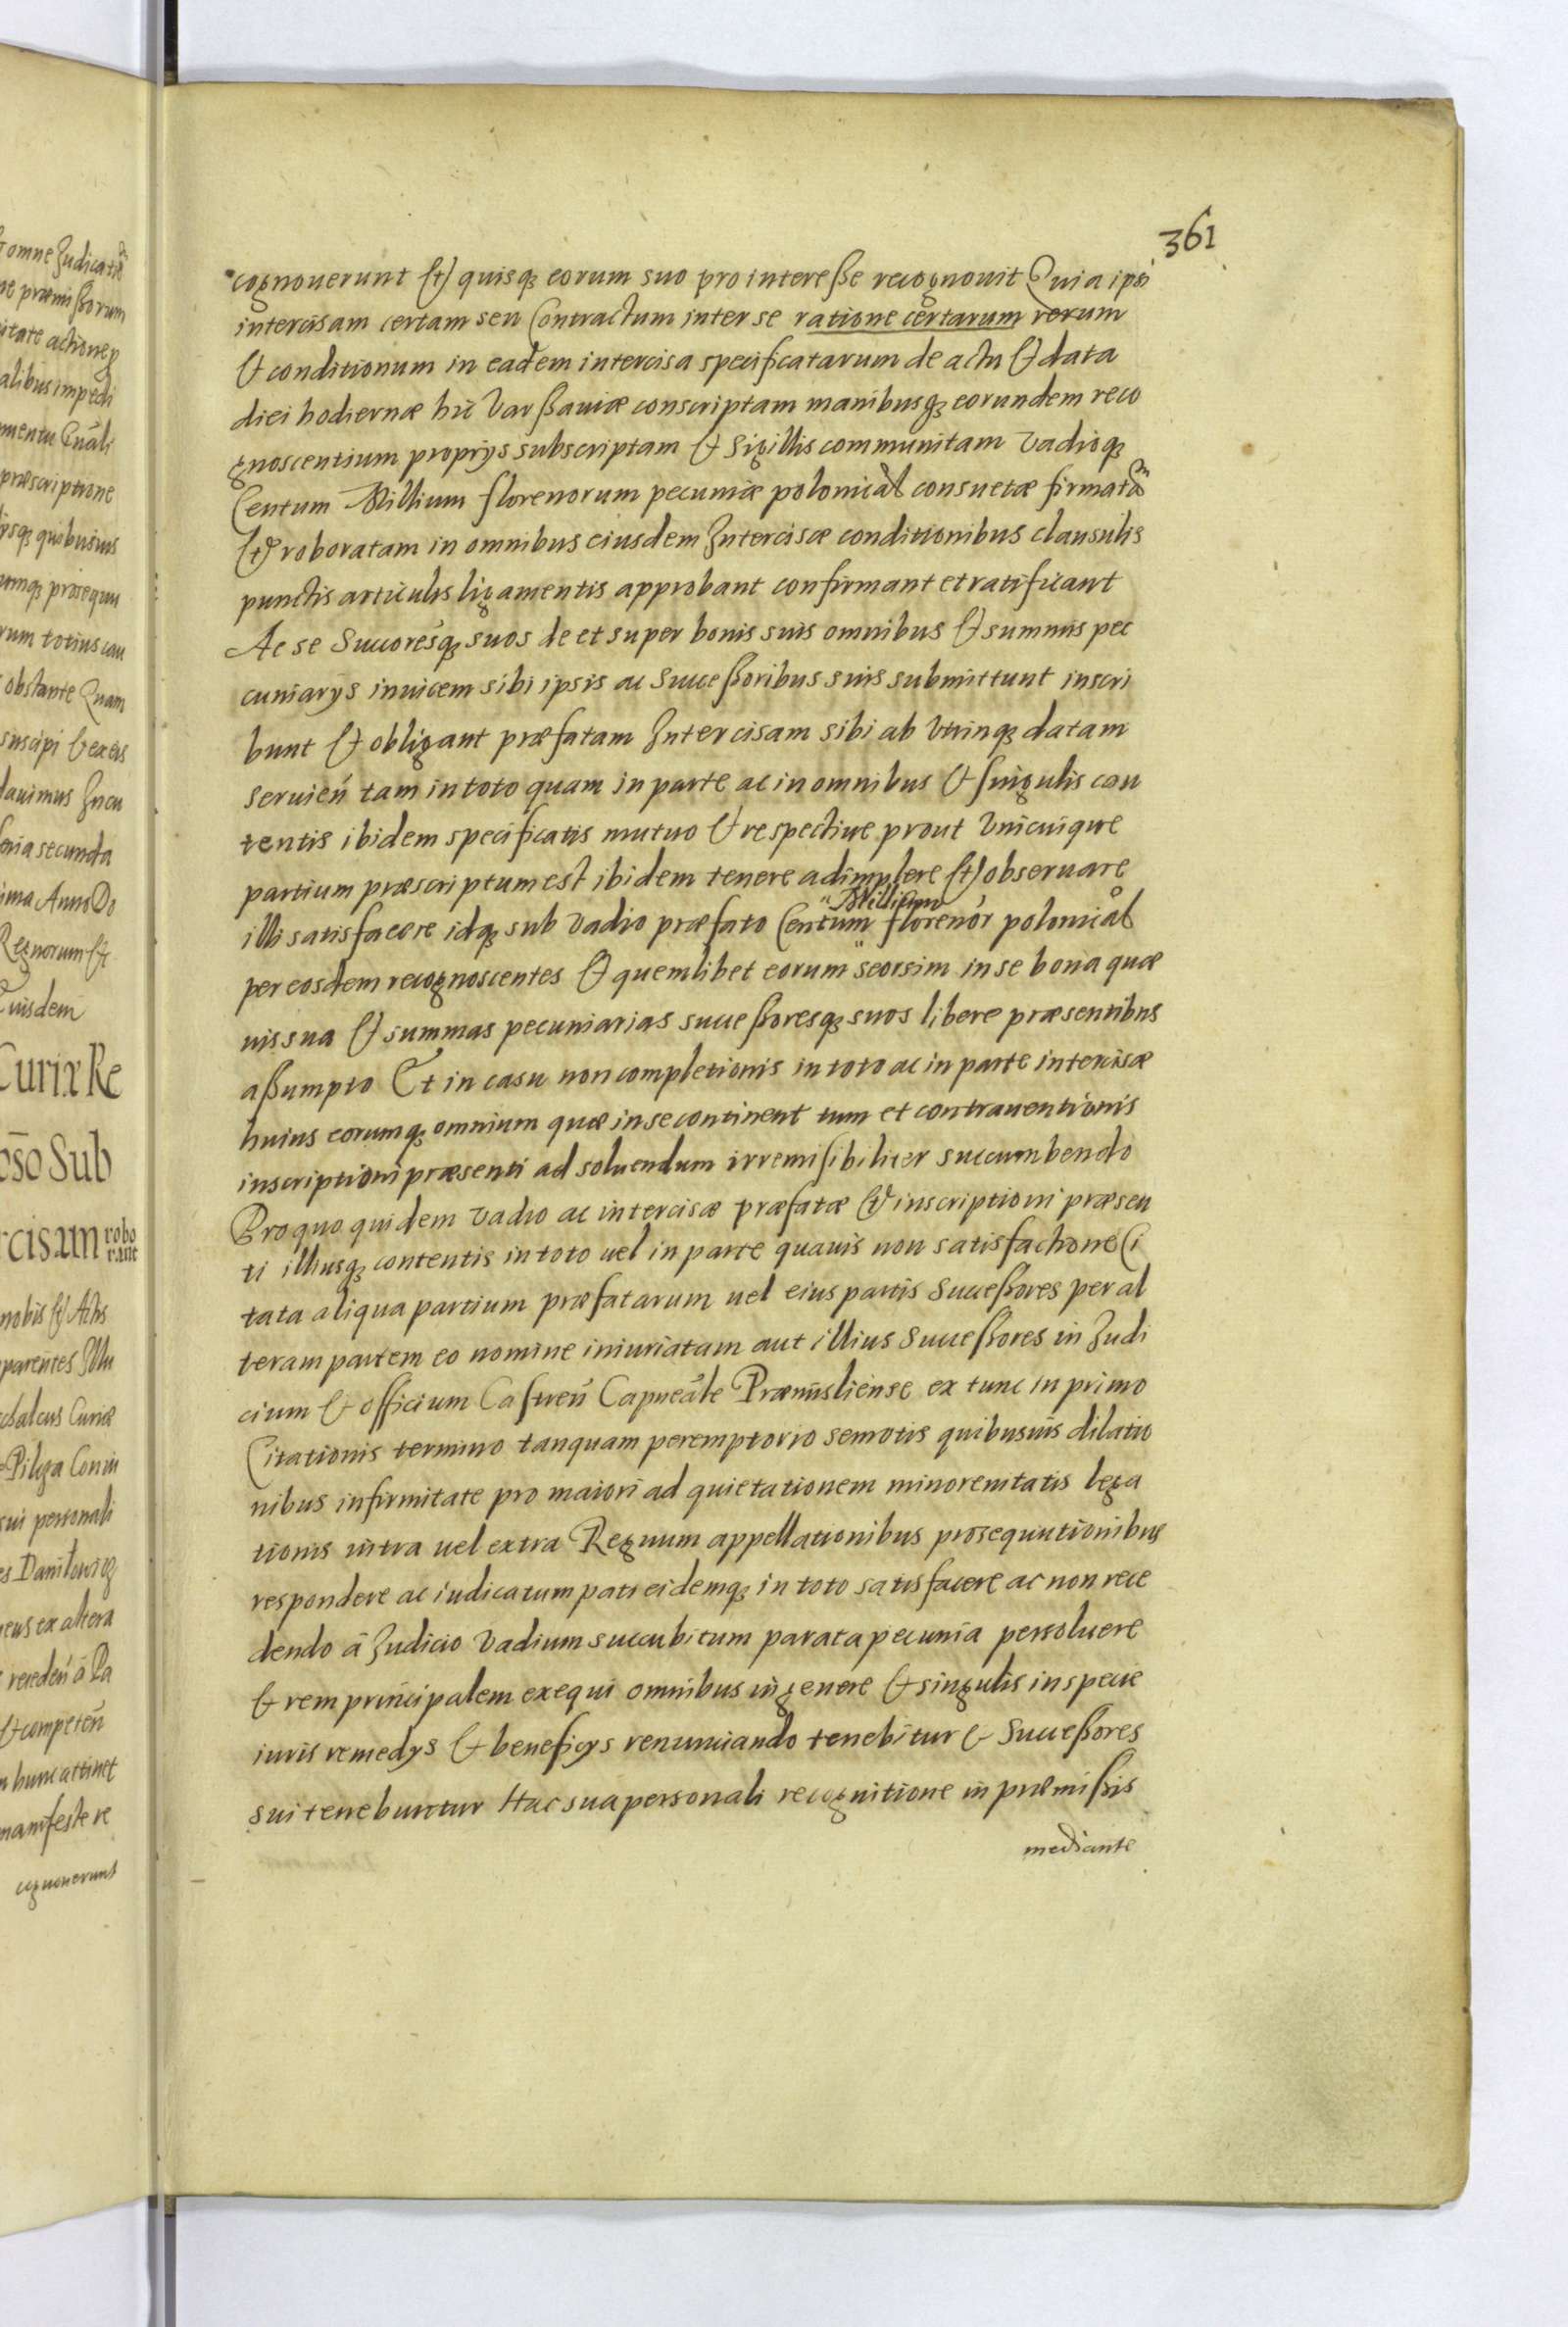 361
cognouerunt et quisq; eorum suo pro interesse recognouit Quia ipsi
intercisam certam seu Contractum inter se ratione certarum rerum
et conditionum in eadem intercisa specificatarum de actu et data
diei hodiernæ hic Varssauiæ conscriptam manibusq; eorundem reco
gnoscentium proprijs subscriptam et Sigillis communitam Vadioq;
Centum Millium florenorum pecuniæ polonical consuetæ firmatā
et roboratam in omnibus eiusdem Intercisæ conditionibus clausulis
punctis articulis ligamentis approbant confirmant et ratificant
Ac se Succoresq; suos de et super bonis suis omnibus et summis pec
cuniarijs inuicem sibi ipsis ac Successoribus suis submittunt inscri
bunt et obligant præfatam Intercisam sibi ab Vtrinq; datam
seruien̄ tam in toto quam in parte ac in omnibus et singulis con
tentis ibidem specificatis mutuo et respectiue prout Vnicuique
partium præscriptum est ibidem tenere adimplere et obseruare
illi satisfacere idq; sub Vadio præfato Centum Millium florenor polonical
per eosdem recognoscentes et quemlibet eorum seorsim in se bona quæ
uis sua et summas pecuniarias successoresq; suos libere præsentibus
assumpto Et in casu non completionis in toto ac in parte intercisæ
huius eorumq; omnium quæ in se continent tum et contrauentionis
inscriptioni præsenti ad soluendum irremisibiliter succumbendo
Pro quo quidem vadio ac intercisæ præfatæ et inscriptioni præsen
ti illiusq; contentis in toto uel in parte quauis non satisfactione Ci
tata aliqua partium præfatarum uel eius partis Successores per al
teram partem eo nomine iniuriatam aut illius Successores in Iudi
cium et officium Castren̄ Capneāle Præmisliense ex tunc in primo
Citationis termino tanquam peremptorio semotis quibusuis dilatio
nibus infirmitate pro maiori ad quietationem minorenitatis lega
tionis intra uel extra Regnum appellationibus prosequutionibus
respondere ac iudicatum pati eidemq; in toto satisfacere ac non rece
dendo â Iudicio Vadium succubitum parata pecunia persoluere
et rem principalem exequi omnibus in genere et singulis in specie
iuris remedys et beneficys renunciando tenebitur et Successores
sui tenebuntur Hac sua personali recognitione in præmissis
mediante